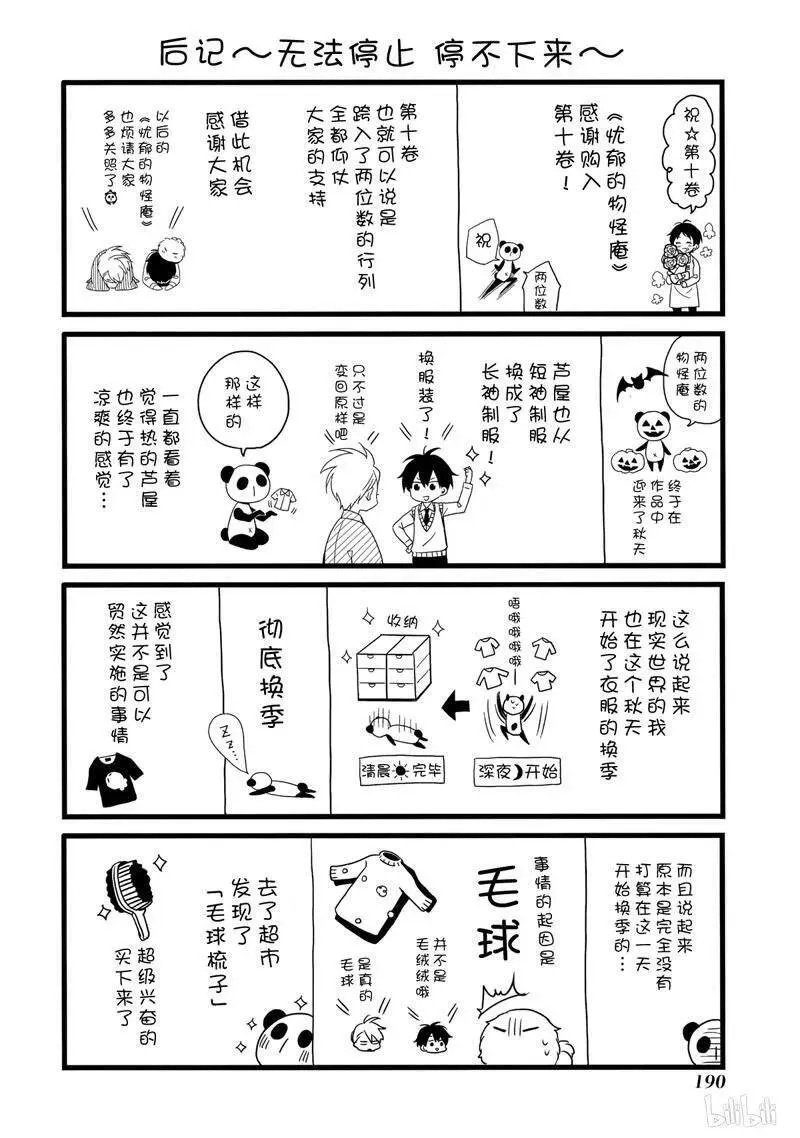 后记～无法停止 停不下来～
祝☆第十卷
《忧郁的物怪庵》
感谢购入
第十卷！
祝
两位数
第十卷
也就可以说是
跨入了两位数的行列
全都仰仗
大家的支持
借此机会
感谢大家
以后的
《忧郁的物怪庵》
也烦请大家
多多关照了
两位数的
物怪庵
终于在
作品中
迎来了秋天
芦屋也从
短袖制服
换成了
长袖制服！
换服装了！
只不过是
变回原样吧
这样
那样的
一直都看着
觉得热的芦屋
也终于有了
凉爽的感觉…
这么说起来
现实世界的我
也在这个秋天
开始了衣服的换季
唔哦哦哦哦
深夜开始
收纳
清晨完毕
彻底换季
ZZ…
感觉到了
这并不是可以
贸然实施的事情
而且说起来
原本是完全没有
打算在这一天
开始换季的…
事情的起因是
毛球
并不是
毛绒绒哦
是真的
毛球
去了超市
发现了
「毛球梳子」
超级兴奋的
买下来了
190
bilibili